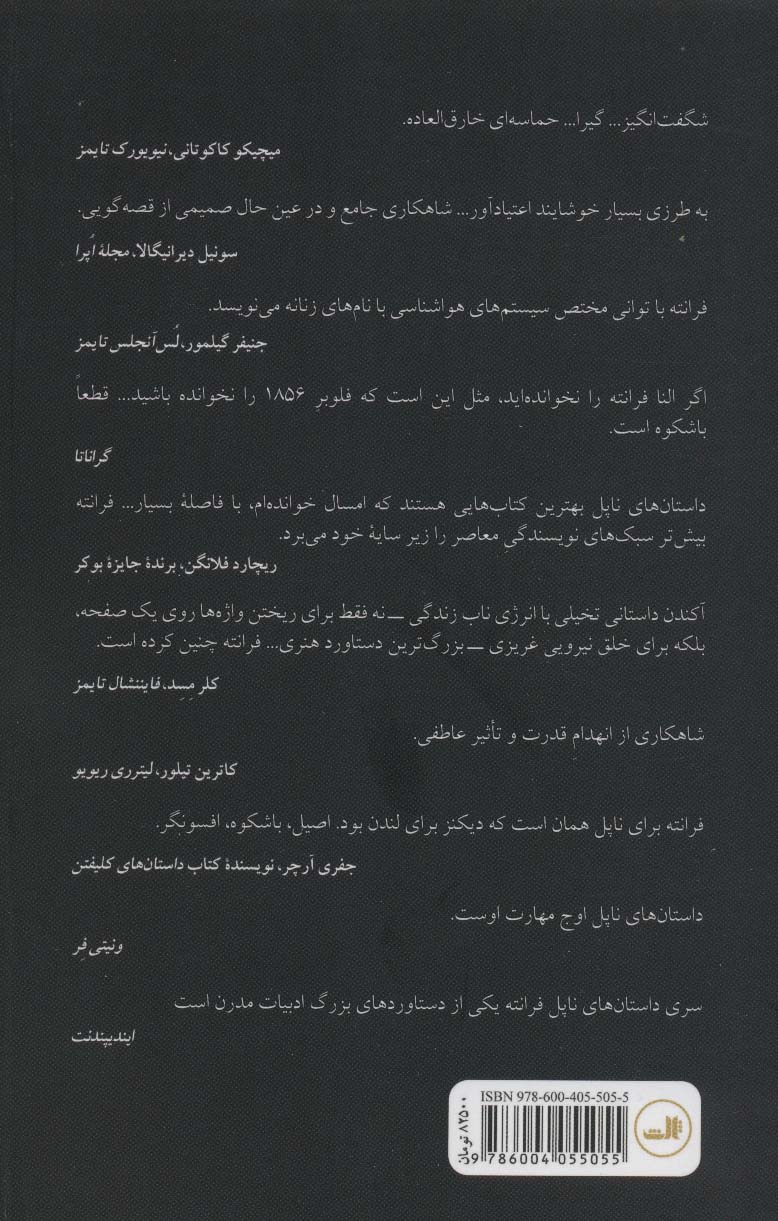 شگفت‌انگیز... گیرا... حماسه‌ای خارق‌العاده.
میچیکو کاکوتانی، نیویورک تایمز
به طرزی بسیار خوشایند اعتیادآور... شاهکاری جامع و در عین حال صمیمی از قصه‌گویی.
سونیل دیرانیگالا، مجلهٔ اُپرا
فرانته با توانی مختص سیستم‌های هواشناسی با نام‌های زنانه می‌نویسد.
جنیفر گیلمور، لُس‌آنجلس تایمز
اگر النا فرانته را نخوانده‌اید، مثل این است که فلوبرِ ۱۸۵۶ را نخوانده باشید... قطعاً
باشکوه است.
گراناتا
داستان‌های ناپل بهترین کتاب‌هایی هستند که امسال خوانده‌ام، با فاصلهٔ بسیار... فرانته
بیش‌تر سبک‌های نویسندگیِ معاصر را زیر سایهٔ خود می‌برد.
ریچارد فلانگن، برندهٔ جایزهٔ بوکر
آکندن داستانی تخیلی با انرژی ناب زندگی ــ نه فقط برای ریختن واژه‌ها روی یک صفحه،
بلکه برای خلق نیرویی غریزی ــ بزرگ‌ترین دستاورد هنری... فرانته چنین کرده است.
کلر مِسِد، فایننشال تایمز
شاهکاری از انهدامِ قدرت و تأثیر عاطفی.
کاترین تیلور، لیترری ریویو
فرانته برای ناپل همان است که دیکنز برای لندن بود. اصیل، باشکوه، افسونگر.
جفری آرچر، نویسندهٔ کتاب داستان‌های کلیفتن
داستان‌های ناپل اوج مهارت اوست.
ونیتی فِر
سری داستان‌های ناپل فرانته یکی از دستاوردهای بزرگ ادبیات مدرن است
ایندیپندنت
ISBN 978-600-405-505-5
۸۲۵۰۰ تومان
9 786004 055055
ثالث